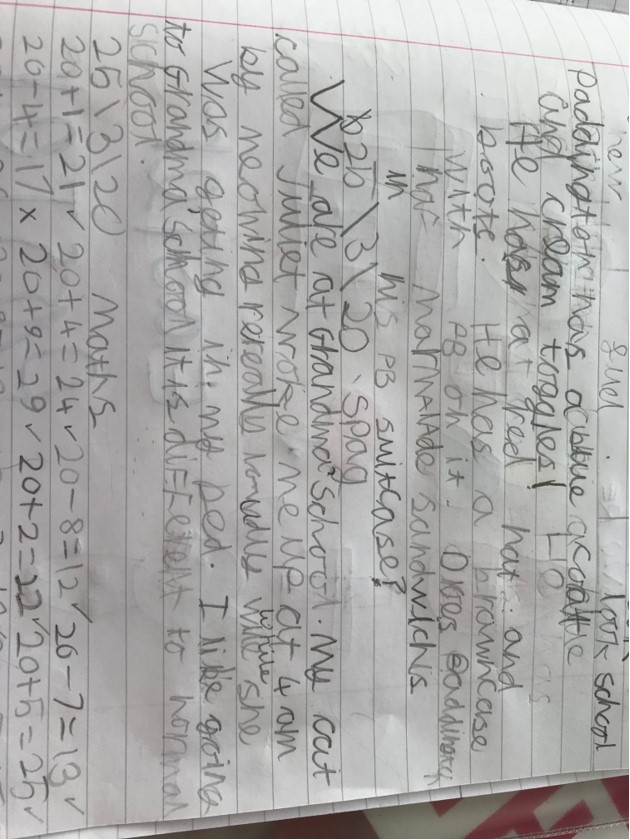 new and look school
Paddington has a blue
and cream toggles! He
He has a red hat and
boots. He has a browncase
with PB on it. Does
that marmalade sandwichs
in his PB suitcase?
25\3\20 Spag
We are at Grandma School. My cat
called Juliet wroke me up at 4 am
by neowing while she
was geting in my bed. I like going
to Grandma School it is different to normal
school.
25\3\20 Maths
20+1=21✓ 20+4=24✓ 20-8=12✓ 20-7=13✓
20-4=17 x 20+9=29✓ 20+2=22✓ 20+5=25✓